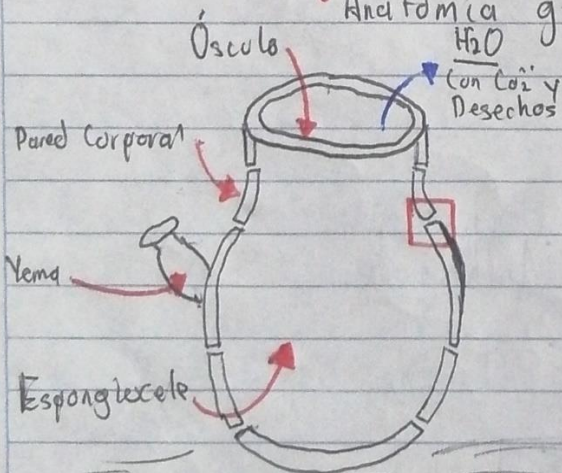 Anatomía g
Ósculo
H2O
Con Co2 y
Desechos
Pared Corporal
Yema
Espongiocele